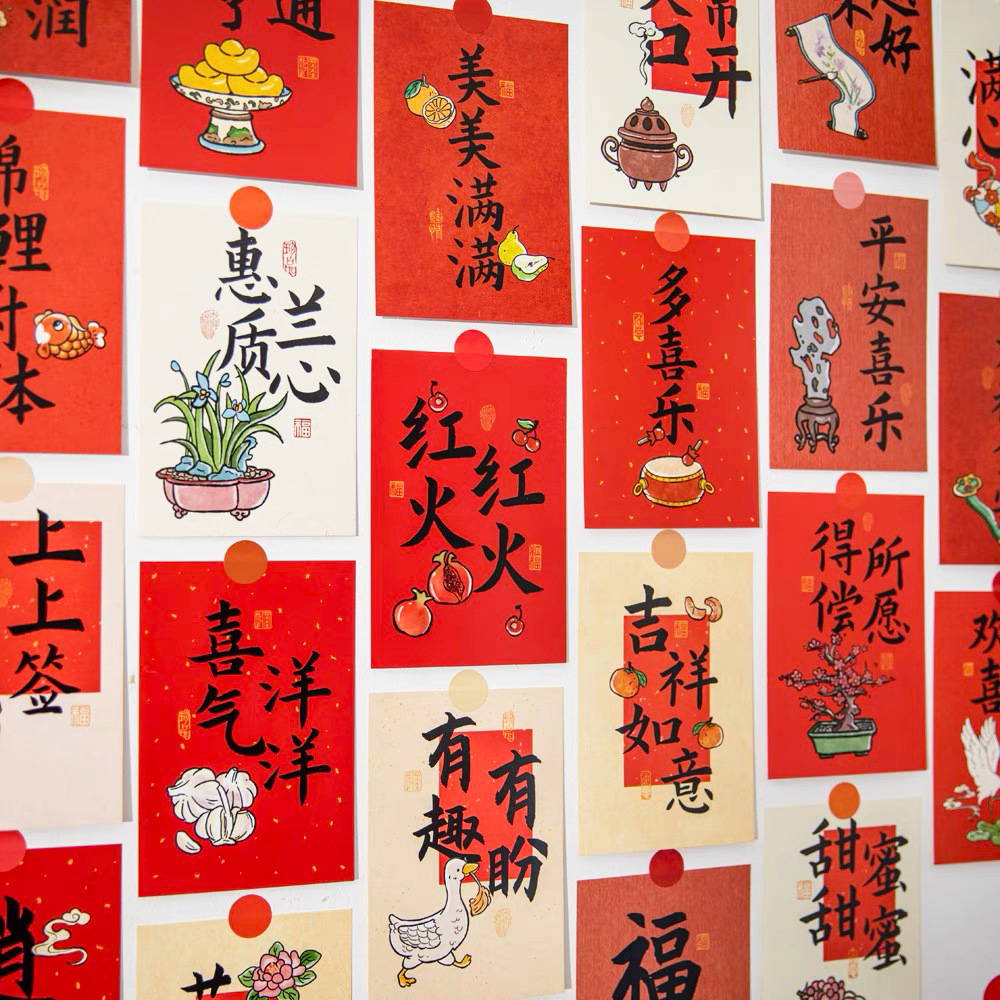 润
亨通
美美满满
口常开
好
满
心
锦鲤附体
惠质兰心
多喜乐
平安喜乐
红红火火
得偿所愿
上上签
喜气洋洋
吉祥如意
欢喜
有趣有盼
甜甜蜜蜜
福